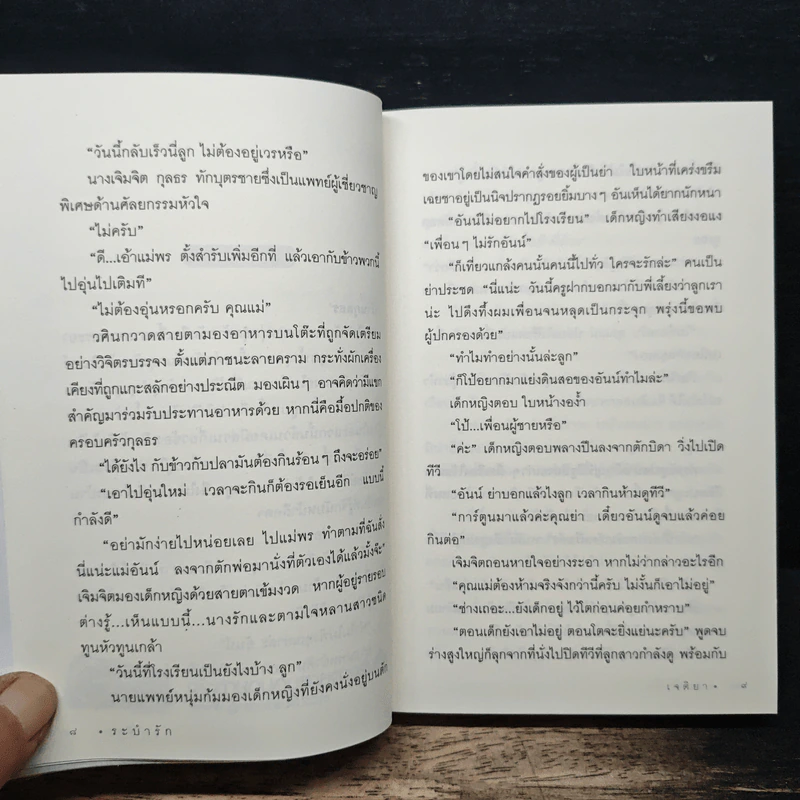 “วันนี้กลับเร็วนี่ลูก ไม่ต้องอยู่เวรหรือ”
นางเจิมจิต กุลธร ทักบุตรชายซึ่งเป็นแพทย์ผู้เชี่ยวชาญ
พิเศษด้านศัลยกรรมหัวใจ
“ไม่ครับ”
“ดี...เอ้าแม่พร ตั้งสำรับเพิ่มอีกที่ แล้วเอากับข้าวพวกนี้
ไปอุ่นไปเติมที”
“ไม่ต้องอุ่นหรอกครับ คุณแม่”
วศินกวาดสายตามองอาหารบนโต๊ะที่ถูกจัดเตรียม
อย่างวิจิตรบรรจง ตั้งแต่ภาชนะลายคราม กระทั่งผักเครื่อง
เคียงที่ถูกแกะสลักอย่างประณีต มองเผินๆ อาจคิดว่ามีแขก
สำคัญมาร่วมรับประทานอาหารด้วย หากนี่คือมื้อปกติของ
ครอบครัวกุลธร
“ได้ยังไง กับข้าวกับปลามันต้องกินร้อนๆ ถึงจะอร่อย”
“เอาไปอุ่นใหม่ เวลาจะกินก็ต้องรอเย็นอีก แบบนี้
กำลังดี”
“อย่ามักง่ายไปหน่อยเลย ไปแม่พร ทำตามที่ฉันสั่ง
นี่แน่ะแม่อันน์ ลงจากตักพ่อมานั่งที่ตัวเองได้แล้วมั้งจ๊ะ”
เจิมจิตมองเด็กหญิงด้วยสายตาเข้มงวด หากผู้อยู่รายรอบ
ต่างรู้...เห็นแบบนี้...นางรักและตามใจหลานสาวชนิด
ทูนหัวทูนเกล้า
“วันนี้ที่โรงเรียนเป็นยังไงบ้าง ลูก”
นายแพทย์หนุ่มก้มมองเด็กหญิงที่ยังคงนั่งอยู่บนตัก
๘ • ระบำรัก
ของเขาโดยไม่สนใจคำสั่งของผู้เป็นย่า ใบหน้าที่เคร่งขรึม
เฉยชาอยู่เป็นนิจปรากฏรอยยิ้มบางๆ อันเห็นได้ยากนักหนา
“อันน์ไม่อยากไปโรงเรียน” เด็กหญิงทำเสียงงอแง
“เพื่อนๆ ไม่รักอันน์”
“ก็เที่ยวแกล้งคนนั้นคนนี้ไปทั่ว ใครจะรักล่ะ” คนเป็น
ย่าประชด “นี่แน่ะ วันนี้ครูฝากบอกมากับพี่เลี้ยงว่าลูกเรา
น่ะ ไปดึงทึ้งผมเพื่อนจนหลุดเป็นกระจุก พรุ่งนี้ขอพบ
ผู้ปกครองด้วย”
“ทำไมทำอย่างนั้นล่ะลูก”
“ก็โป้อยากมาแย่งดินสอของอันน์ทำไมล่ะ”
เด็กหญิงตอบ ใบหน้างอง้ำ
“โป้...เพื่อนผู้ชายหรือ”
“ค่ะ” เด็กหญิงตอบพลางปีนลงจากตักบิดา วิ่งไปเปิด
ทีวี
“อันน์ ย่าบอกแล้วไงลูก เวลากินห้ามดูทีวี”
“การ์ตูนมาแล้วค่ะคุณย่า เดี๋ยวอันน์ดูจบแล้วค่อย
กินต่อ”
เจิมจิตถอนหายใจอย่างระอา หากไม่ว่ากล่าวอะไรอีก
“คุณแม่ต้องห้ามจริงจังกว่านี้ครับ ไม่งั้นก็เอาไม่อยู่”
“ช่างเถอะ...ยังเด็กอยู่ ไว้โตก่อนค่อยกำหราบ”
“ตอนเด็กยังเอาไม่อยู่ ตอนโตจะยิ่งแย่นะครับ” พูดจบ
ร่างสูงใหญ่ก็ลุกจากที่นั่งไปปิดทีวีที่ลูกสาวกำลังดู พร้อมกับ
เจติยา • ๙